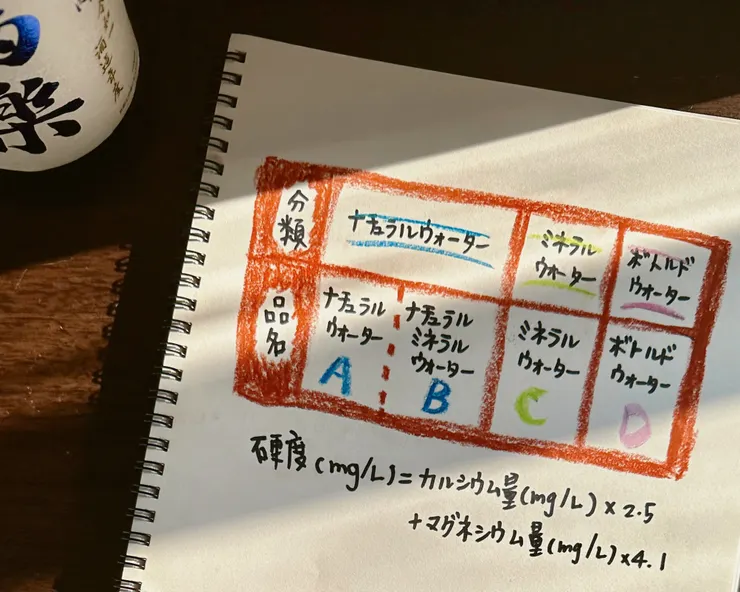 楽
分類
ナチュラルウォーター
ミネラル
ウォーター
ボトルド
ウォーター
品名
ナチュラル
ウォーター
A
ナチュラル
ミネラル
ウォーター
B
ミネラル
ウォーター
C
ボトルド
ウォーター
D
硬度(mg/L)=カルシウム量(mg/L)×2.5
+マグネシウム量(mg/L)×4.1